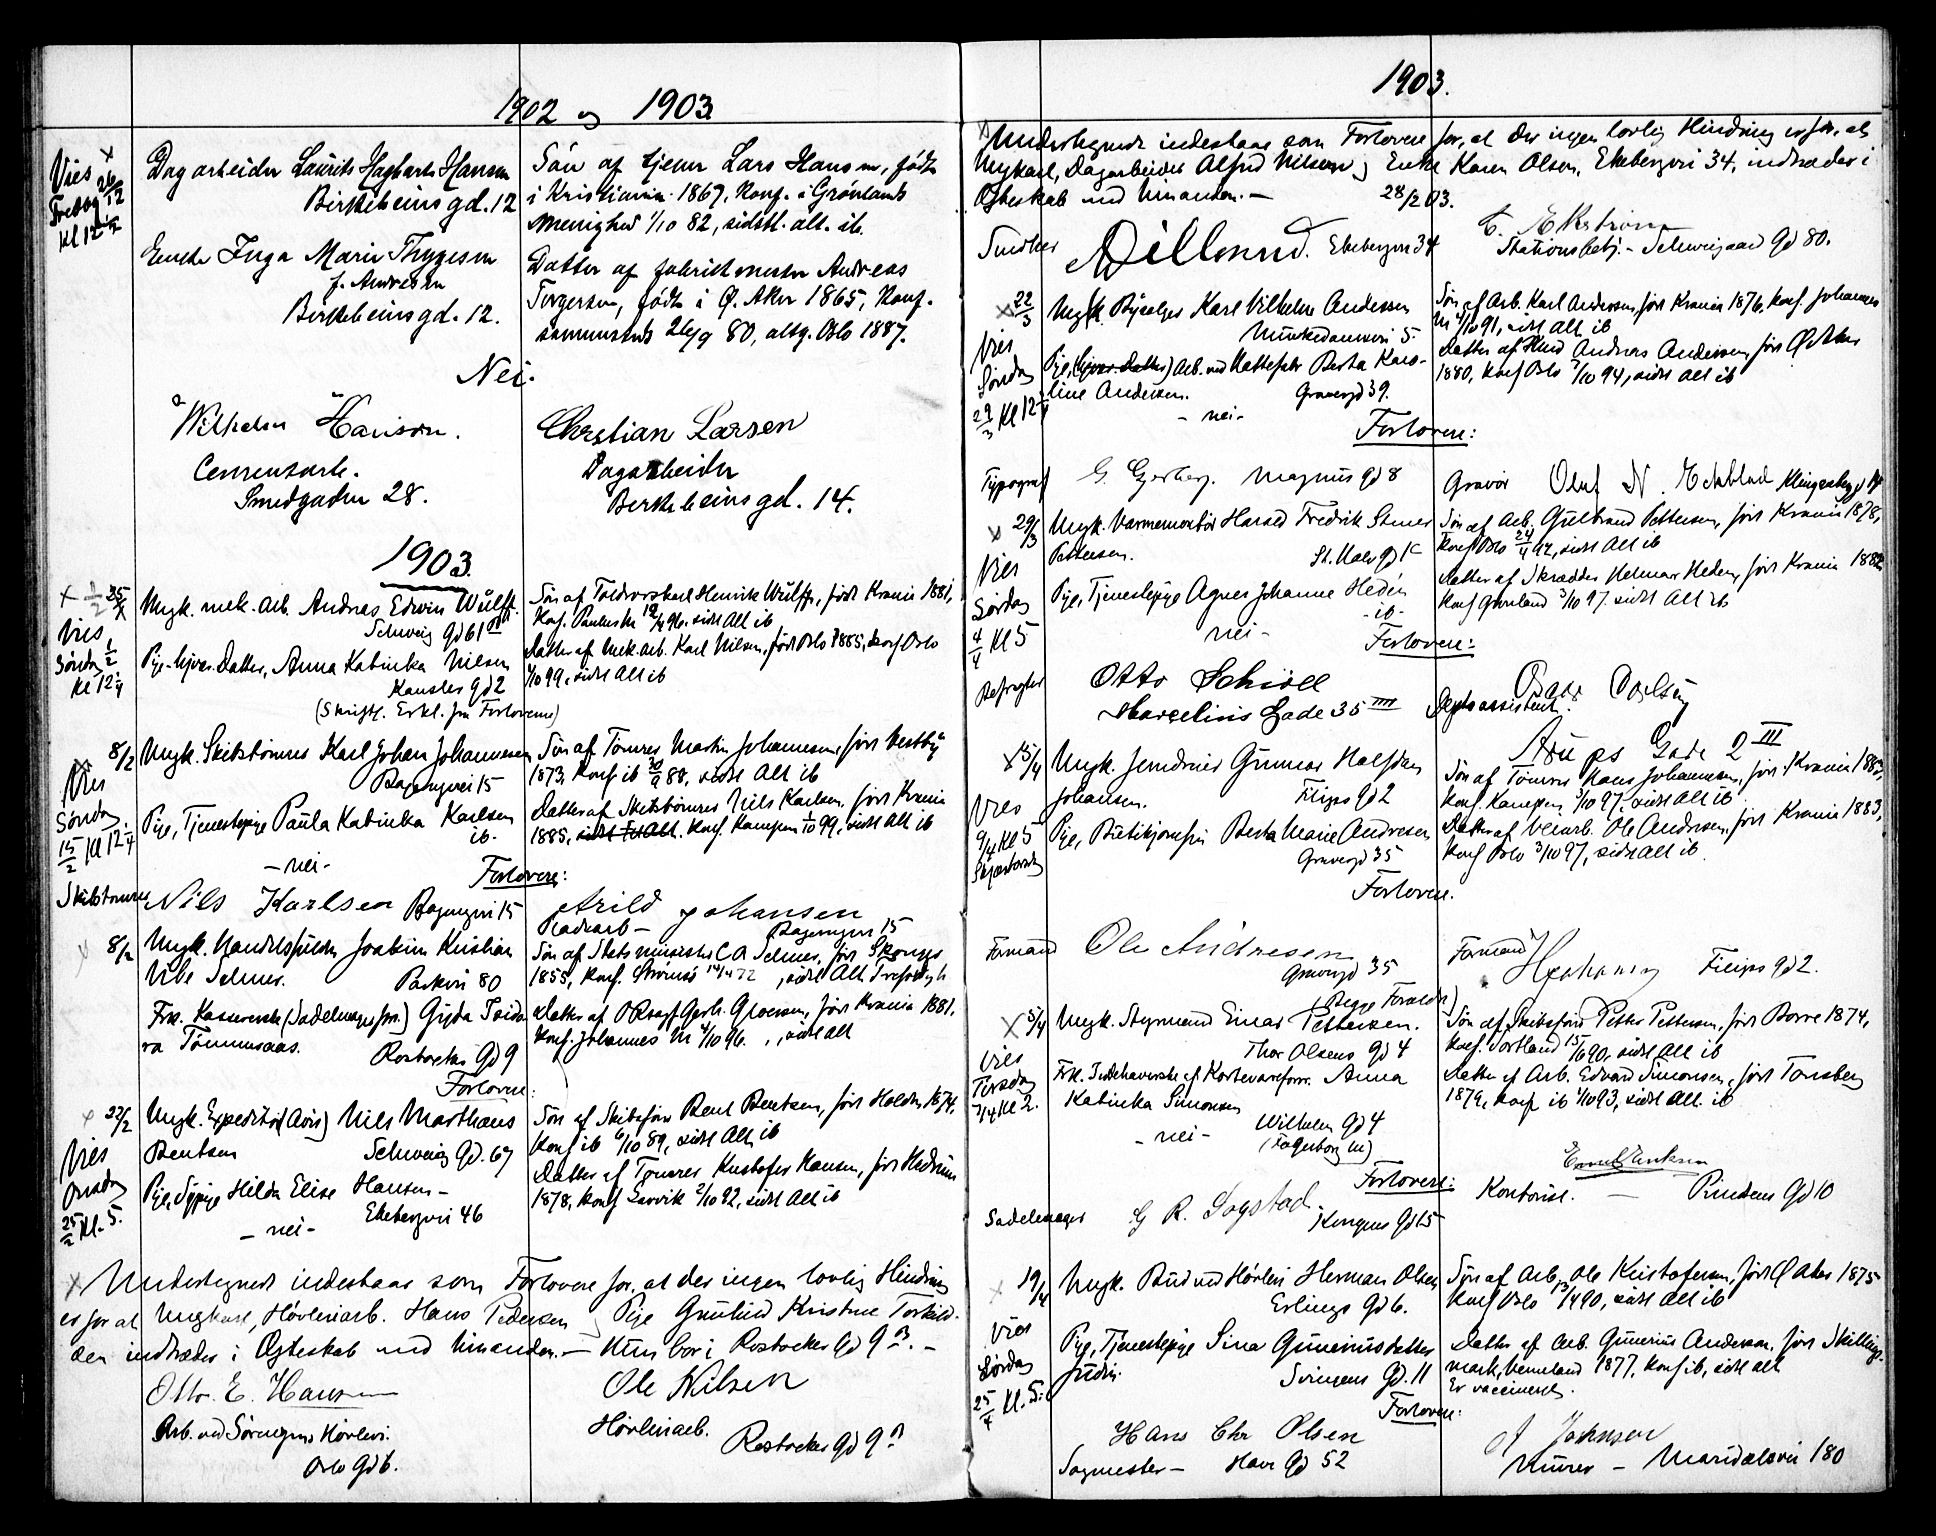 1902 og 1903.
Vies
Fredag 26/12
Kl 12 1/2
Dagarbeider Laurits Hagbarth Hansen
Birkebeinsgd. 12
Enke Inga Marie Thygesen
f. Andresen
Birkebeinsgd. 12.
Søn af tjener Lars Hansen, født
i Kristiania 1867, Konf. i Grønlands
Menighed 1/10 82, sidst. alt. ib.
Datter af fabrikmester Andreas
Torgersen, født i Ø. Aker 1865, Konf.
sammesteds 26/9 80, altg. Oslo 1887.
Nei.
Wilhelm Hanson.
Cementarb.
Smedgaden 28.
Christian Larsen
Dagarbeider
Birkebeinsgd. 14.
1903.
Vies
Søndag 1/2
Kl 12 1/4
Ungk. mek. Arb. Andreas Edvin Wulff
Schweig Gd 61
Pige, hjvær. Datter, Anna Katinka Nilsen
Kanslergd 2
(Skriftl. Erkl. fra Forloverne)
Søn af Toldvorskarl Henrik Wulff, født Krania 1881,
Konf. Paulusk 96. sidst Alt ib
Datter af mek. arb. Karl Nilsen, født Oslo 1885, konf Oslo
1/10 99, sidst Alt ib
8/2
Vies
Søndag
15/2 Kl 12 1/4
Ungk. Skibstømrer Karl Johan Johannesen
15
Pige, Tjenestepige Paula Katinka Karlsen
ib.
- nei -
Søn af Tømrer Martin Johannesen, født Vestby
1873, Konf ib 30/9 88, sidst Alt ib
Datter af Skibstømrer Nils Karlsen, født Krania
1885, Konf. Kampen 1/10 99, sidst Alt ib
Forlovere:
Skibstømrer Nils Karlsen 15
Arild Johansen
15
8/2
Ungk. Handelsfuldm Joakim Kristian
Vibe Selmer.
Parkvei 80
Frk. Kassererske (Sadelmagerforr.) Gyda Isido
ra Tømmeraas.
Rostocker Gd 9
Søn af Statsminister C A Selmer, født
1855, Konf. Strømsø 72, sidst Alt
Datter af Gerh. født Krania 1881,
Konf. Johannes M 4/10 96., sidst alt
Forlovere:
22/2
Vies
Onsdag
25/2 Kl. 5.
Ungk. Expeditør (Avis) Nils Marthaus
Bentsen
Schweig Gd. 67
Pige, Sypige Hilda Elise Hansen -
Ekebergvei 46
- nei -
Søn af Skibsfører Bent Bentsen, født Holden 1874,
Konf ib 6/10 89, sidst Alt ib
Datter af Tømrer Kristofer Hansen, født Hedrum
1878, Konf Larvik 2/10 92, sidst Alt ib
Undertegnede indestaar som Forlovere for, at der ingen lovlig Hindring
er for at Ungkarl, Høvleriarb. Hans Pedersen Pige Gunhild Kristine Torkild-
sen indtræder i Ægteskab med hinanden. - Hun bor i Rostocker Gd 9 -
Otto. E. Hansen
Arb. ved Sørengens Høvleri.
Oslo Gd 6.
Ole Nilsen
Høvleriarb.
Rostocker Gd 9
1903.
Undertegnede indestaar som Forlovere for, at der ingen lovlig Hindring er for, at
Ungkarl, Dagarbeider Alfred Nilsen og Enke Karen Olsen, Ekebergvei 34, indtræder i
Ægteskab med hinanden. - 28/2 03.
Snedker Ekebergvei 34
C. Ekstrøm
Stationsbetj. - Schweigaard Gd 80.
22/3
Vies
Søndag
29/3 Kl 12 1/4
Ungk. Bysælger Karl Vilhelm Andersen
Munkedamsvei 5.
Pige, Arb. ved Hattefabr Berta Karo-
line Andersen. Grønergd 39.
- nei -
Søn af Arb. Karl Andersen, født Krania 1876, Konf. Johannes
M 4/10 91, sidst Alt ib
Datter af Andreas Andersen, født Ø Aker
1880, Konf Oslo 7/10 94, sidst Alt ib
Forlovere:
Typograf Magnus gd 8
Gravør Oluf N. Eckblad Klingenberggd
29/3
Vies
Søndag
4/4 Kl 5
Ungk. Varmemontør Harald Fredrik
Pettersen.
Pige, Tjenestepige Agnes Johanne Hedén
- ib -
nei -
Søn af Arb. Gulbrand Pettersen, født Krania 1878,
Konf Oslo 24/4 92, sidst Alt ib
Datter af Skrædder Helmar Heden, født Krania 1882
Konf Grønland 3/10 97. sidst Alt ib
Forlovere:
Otto Schiøll
Marselius Gade 35 IIII
Arups Gade 2 III
5/4
Vies
9/4 Kl 5
Skjærtorsdag
Ungk. Jerndreier Gunnar Halfdan
Johansen. Filips gd 2
Pige, Butikjomfru Berta Marie Andresen
Grønergd 35
Søn af Tømrer Hans Johannesen, født Krania 1883,
Konf. Kampen 3/10 97, sidst Alt ib
Datter af Veiarb. Ole Andresen, født Krania 1883,
Konf Oslo 3/10 97, sidst Alt ib
Forlovere.
Formand Ole Andresen
Grønergd 35
Formand H Johansen Filips gd 2.
(Begge Forældre)
5/4
Vies
Tirsdag
7/4 Kl 2.
Ungk. Styrmand Einar Pettersen.
Thor Olsens Gd 4
Frk. Indehaverske af Kortevareforr. Anna
Katinka Simonsen
- nei - Wilhelms Gd 4
(Fagerborg M)
Søn af Skibsfører Petter Pettersen, født Borre 1874,
Konf. 90, sidst Alt ib
Datter af Arb. Edvard Simonsen, født Tønsberg
1879, Konf ib 1/10 93, sidst Alt. ib
Forlovere:
Sadelmager G R. Sogstad Kongens Gd 15
Kontorist. - Prinsens Gd 10
19/4
Vies
Lørdag
25/4 Kl. 5.
Ungk. Bud ved Høvleri Herman Olsen
Erlings Gd 6.
Pige, Tjenestepige Sina Guneriusdatter
Sveigens Gd. 11
Søn af Arb, Ole Kristofersen, født Ø Aker 1875
Konf Oslo 90, sidst Alt ib
Datter af Arb. Gunerius Andersen, født Skillings-
mark, Vermland 1877, Konf ib, sidst alt
Er vaccineret.
Forlovere:
Hans Chr Olsen
Sagmester - Have Gd 52
A Johnsen
Murer - Maridalsvei 180